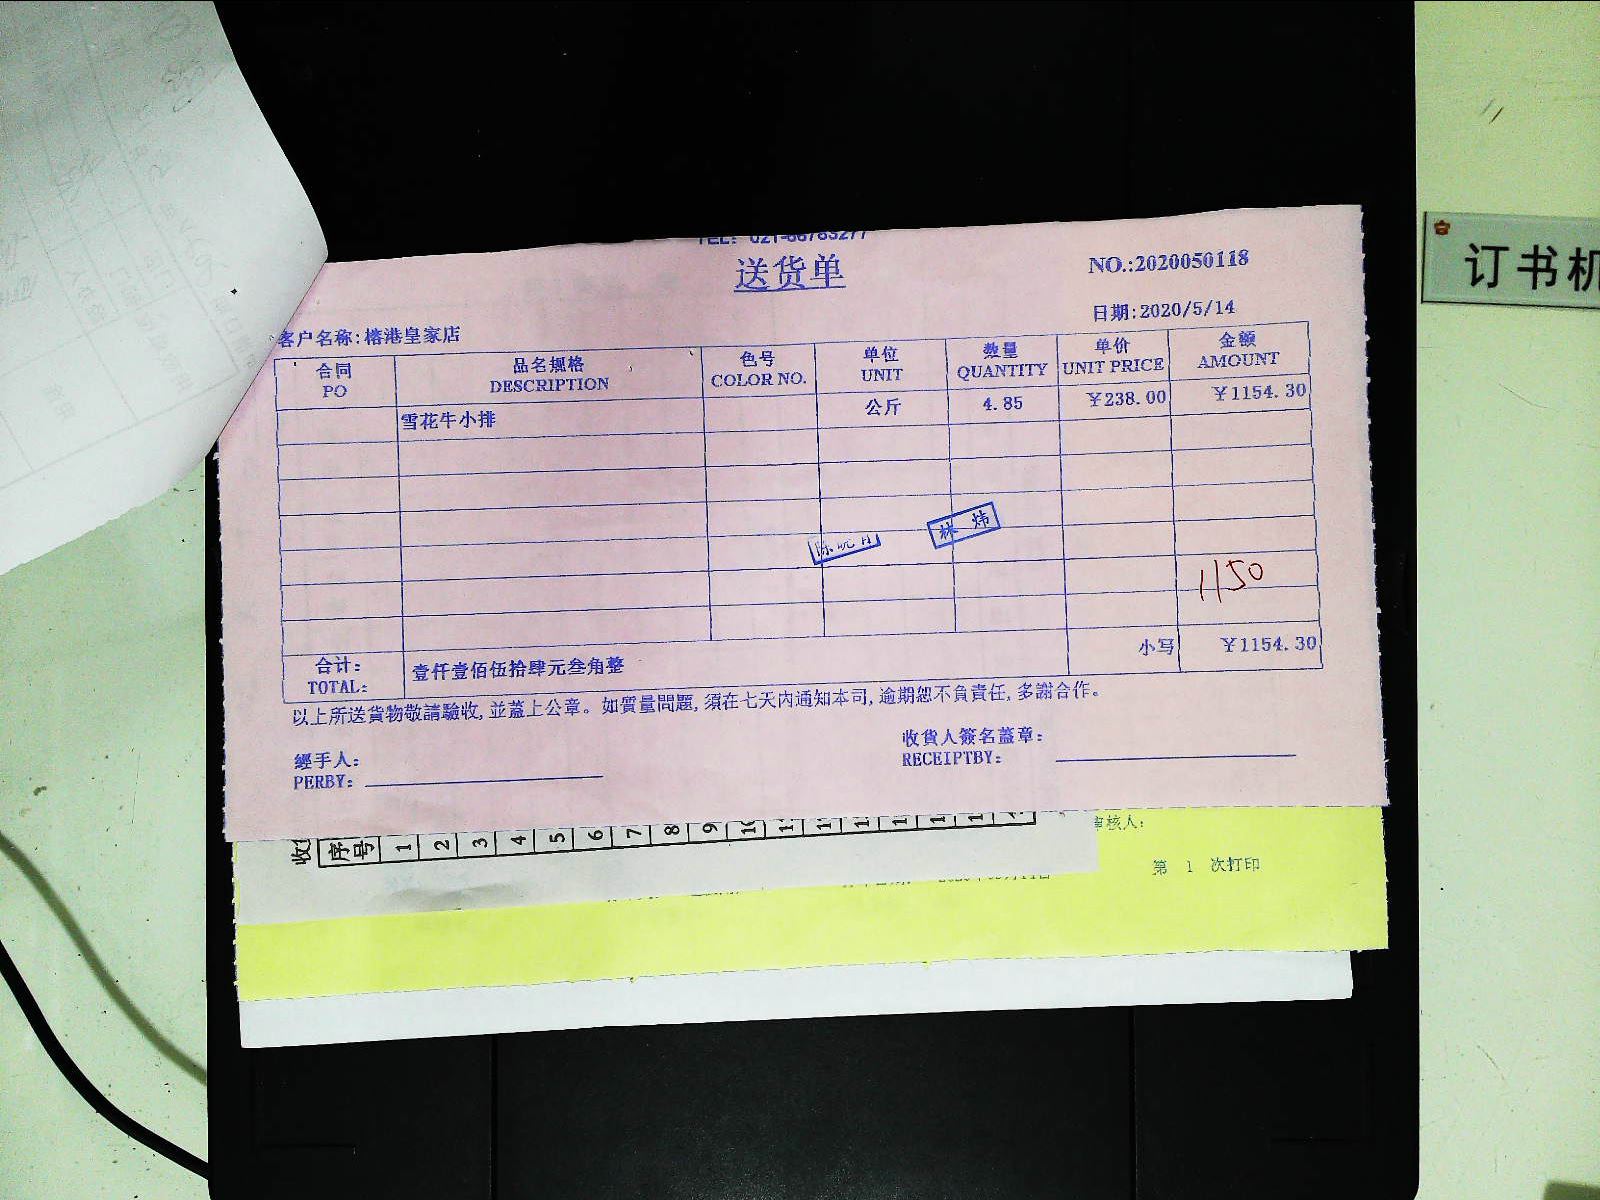 送货单
NO.:2020050118
日期:2020/5/14
客户名称:榕港皇家店
合同 品名规格 色号 单位 数量 单价 金额
PO DESCRIPTION COLOR NO. UNIT QUANTITY UNIT PRICE AMOUNT
雪花牛小排 公斤 4.85 ￥238.00 ￥1154.30
林 炜
1150
合计: 壹仟壹佰伍拾肆元叁角整 小写 ￥1154.30
TOTAL:
以上所送貨物敬請驗收,並蓋上公章。如質量問題,須在七天內通知本司,逾期恕不負責任,多謝合作。
經手人:
PERBY:
收貨人簽名蓋章:
RECEIPTBY:
序号 1 2 3 4 5 6 7 8 9
核人:
第 1 次打印
订书机